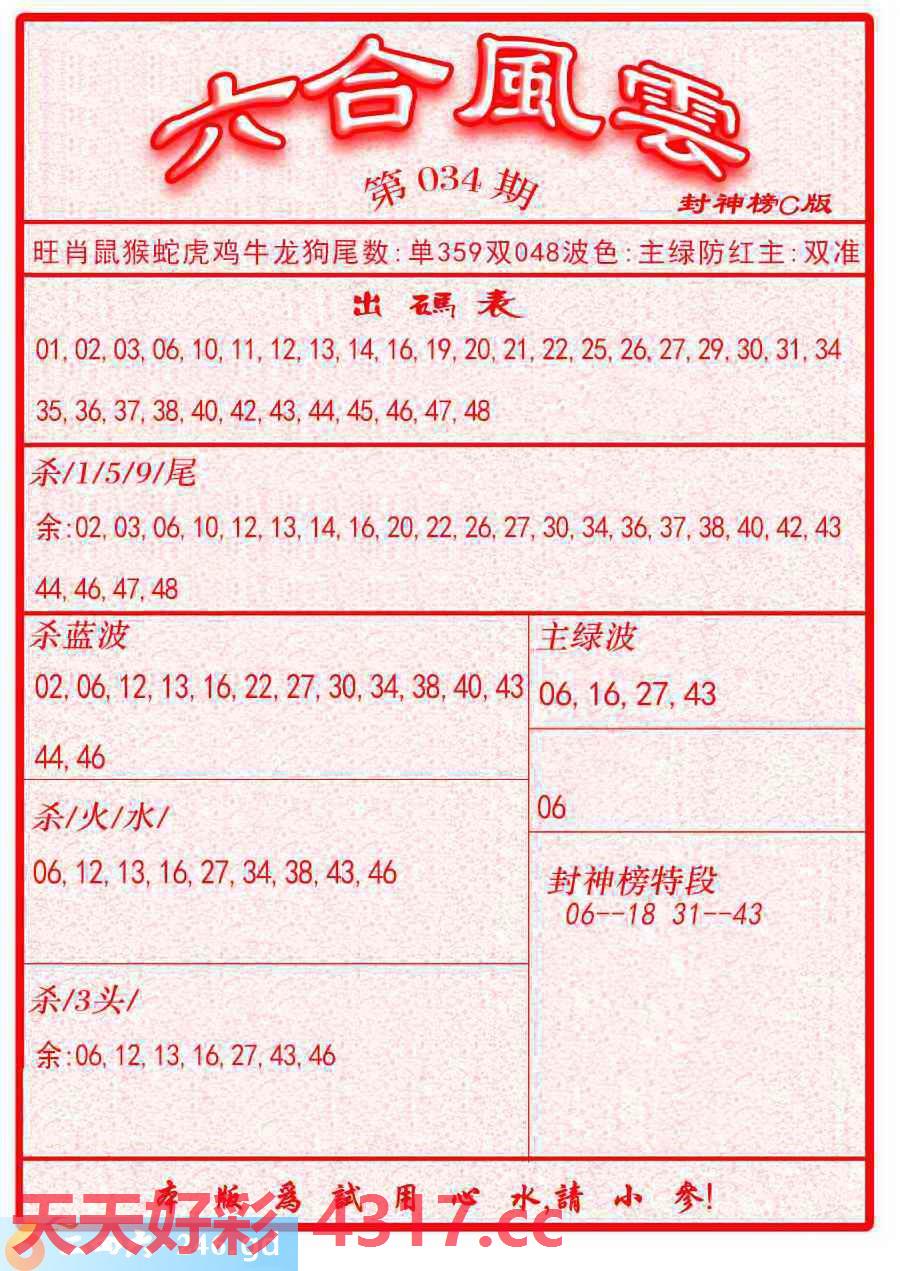 六合風雲
第034期
封神榜C版
旺肖鼠猴蛇虎鸡牛龙狗尾数:单359双048波色:主绿防红主:双准
出碼表
01,02,03,06,10,11,12,13,14,16,19,20,21,22,25,26,27,29,30,31,34
35,36,37,38,40,42,43,44,45,46,47,48
杀/1/5/9/尾
余:02,03,06,10,12,13,14,16,20,22,26,27,30,34,36,37,38,40,42,43
44,46,47,48
杀蓝波
02,06,12,13,16,22,27,30,34,38,40,43
44,46
主绿波
06,16,27,43
06
杀/火/水/
06,12,13,16,27,34,38,43,46
封神榜特段
06--18 31--43
杀/3头/
余:06,12,13,16,27,43,46
本版爲試用心水,請小參!
天天好彩 4317.cc
246.gd